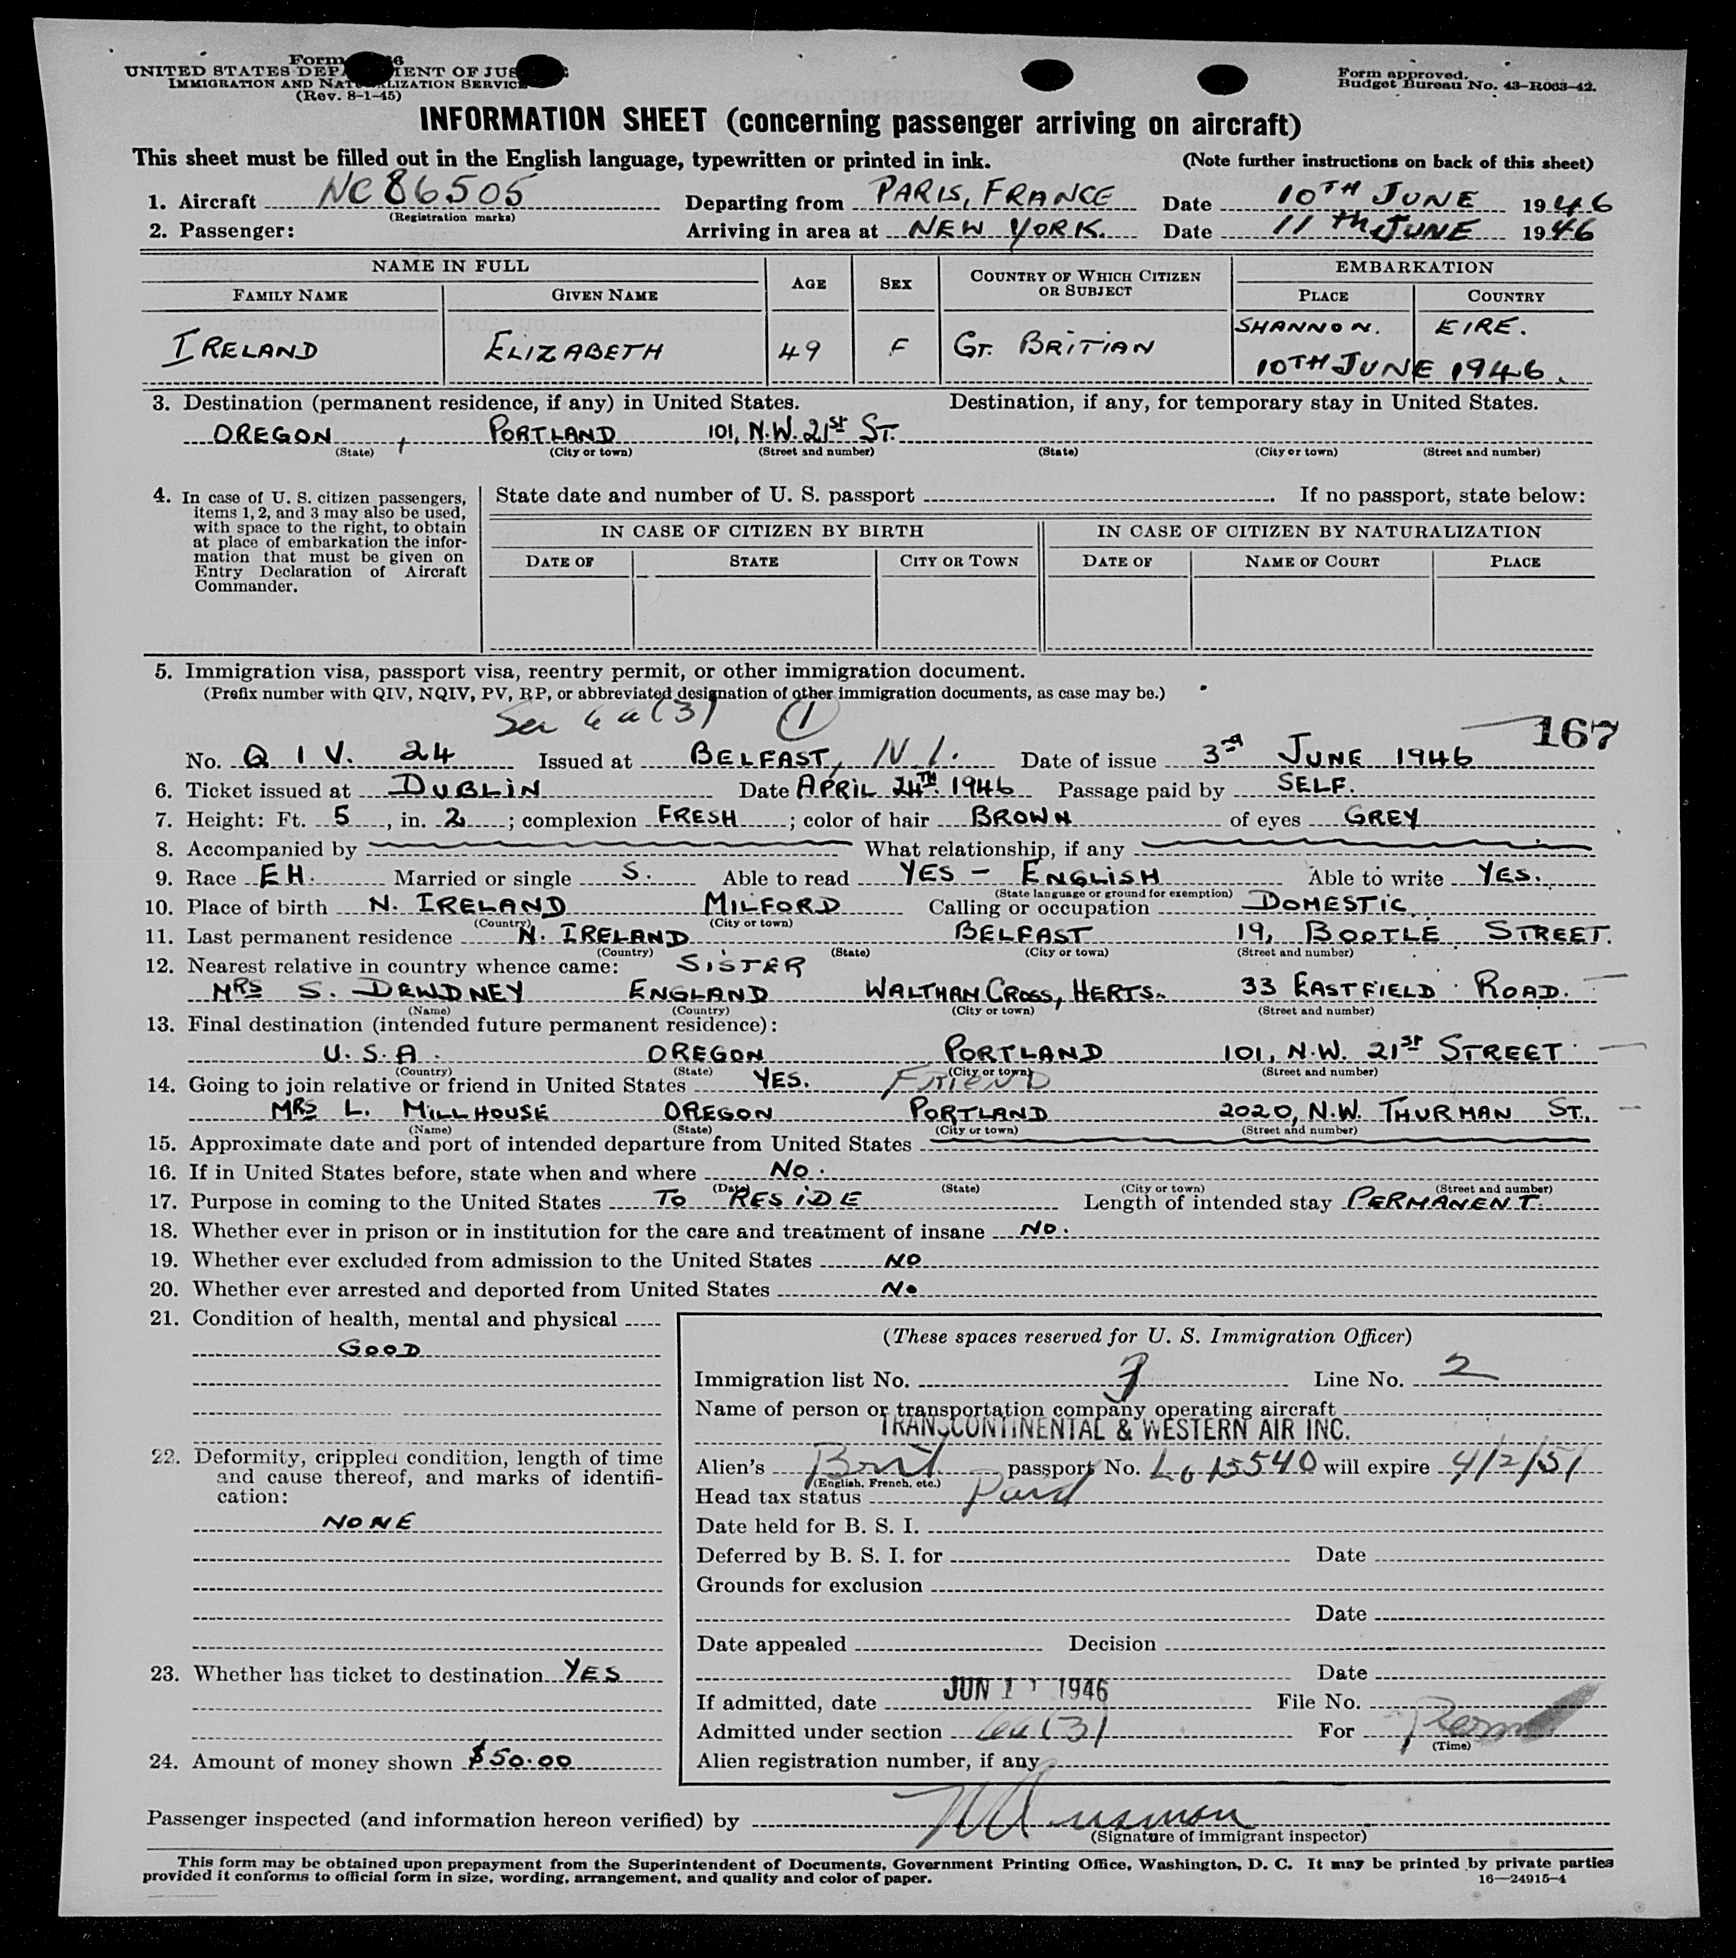 Form
UNITED STATES DEP ENT OF JUS
IMMIGRATION AND NAT LIZATION SERVICE
(Rev. 8-1-45)
Form approved.
Budget Bureau No. 43-R063-42.
INFORMATION SHEET (concerning passenger arriving on aircraft)
This sheet must be filled out in the English language, typewritten or printed in ink. (Note further instructions on back of this sheet)
1. Aircraft NC 86505 Departing from PARIS, FRANCE Date 10TH JUNE 1946
(Registration marks)
2. Passenger: Arriving in area at NEW YORK. Date 11th JUNE 1946
NAME IN FULL AGE SEX COUNTRY OF WHICH CITIZEN OR SUBJECT EMBARKATION
FAMILY NAME GIVEN NAME PLACE COUNTRY
IRELAND ELIZABETH 49 F GT. BRITIAN SHANNON. EIRE.
10TH JUNE 1946.
3. Destination (permanent residence, if any) in United States. Destination, if any, for temporary stay in United States.
OREGON, PORTLAND 101, N.W. 21st ST.
(State) (City or town) (Street and number) (State) (City or town) (Street and number)
4. In case of U. S. citizen passengers, items 1, 2, and 3 may also be used, with space to the right, to obtain at place of embarkation the information that must be given on Entry Declaration of Aircraft Commander.
State date and number of U. S. passport . If no passport, state below:
IN CASE OF CITIZEN BY BIRTH IN CASE OF CITIZEN BY NATURALIZATION
DATE OF STATE CITY OR TOWN DATE OF NAME OF COURT PLACE
5. Immigration visa, passport visa, reentry permit, or other immigration document.
(Prefix number with QIV, NQIV, PV, RP, or abbreviated designation of other immigration documents, as case may be.)
Sec 6a(3) 1 167
No. Q I V. 24 Issued at BELFAST, N.I. Date of issue 3rd JUNE 1946
6. Ticket issued at DUBLIN Date APRIL 24TH 1946 Passage paid by SELF.
7. Height: Ft. 5, in. 2; complexion FRESH; color of hair BROWN of eyes GREY
8. Accompanied by What relationship, if any
9. Race EH. Married or single S. Able to read YES - ENGLISH Able to write YES.
(State language or ground for exemption)
10. Place of birth N. IRELAND MILFORD Calling or occupation DOMESTIC
(Country) (City or town)
11. Last permanent residence N. IRELAND BELFAST 19, BOOTLE STREET.
(Country) (State) (City or town) (Street and number)
12. Nearest relative in country whence came: SISTER
MRS S. DEWDNEY ENGLAND WALTHAM CROSS, HERTS. 33 EASTFIELD ROAD.
(Name) (Country) (City or town) (Street and number)
13. Final destination (intended future permanent residence):
U.S.A. OREGON PORTLAND 101, N.W. 21st STREET
(Country) (State) (City or town) (Street and number)
14. Going to join relative or friend in United States YES. FRIEND
MRS L. MILLHOUSE OREGON PORTLAND 2020, N.W. THURMAN ST.,
(Name) (State) (City or town) (Street and number)
15. Approximate date and port of intended departure from United States
16. If in United States before, state when and where NO.
(Date) (State) (City or town) (Street and number)
17. Purpose in coming to the United States TO RESIDE Length of intended stay PERMANENT.
18. Whether ever in prison or in institution for the care and treatment of insane NO.
19. Whether ever excluded from admission to the United States NO
20. Whether ever arrested and deported from United States NO
21. Condition of health, mental and physical
GOOD
22. Deformity, crippled condition, length of time and cause thereof, and marks of identification:
NONE
23. Whether has ticket to destination YES
24. Amount of money shown $50.00
(These spaces reserved for U. S. Immigration Officer)
Immigration list No. 3 Line No. 2
Name of person or transportation company operating aircraft
TRANSCONTINENTAL & WESTERN AIR INC.
Alien's Brit passport No. L015540 will expire 4/2/51
(English, French, etc.)
Head tax status Paid
Date held for B. S. I.
Deferred by B. S. I. for Date
Grounds for exclusion
Date
Date appealed Decision
Date
If admitted, date JUN 11 1946 File No.
Admitted under section 6a(3) For Perm
(Time)
Alien registration number, if any
Passenger inspected (and information hereon verified) by
(Signature of immigrant inspector)
This form may be obtained upon prepayment from the Superintendent of Documents, Government Printing Office, Washington, D. C. It may be printed by private parties
provided it conforms to official form in size, wording, arrangement, and quality and color of paper. 16—24915-4